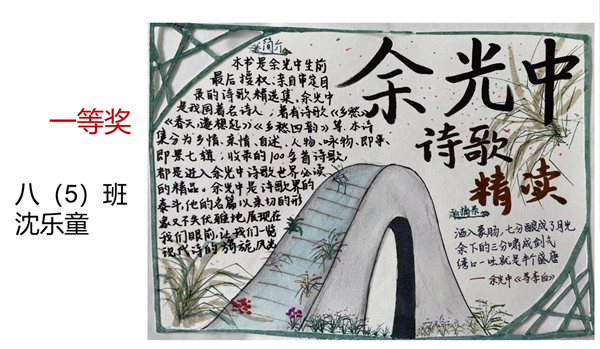 一等奖
八（5）班
沈乐童
简介
本书是余光中生前
最后授权、亲自审定目
录的诗歌精选集。余光中
是我国著名诗人，著有诗歌《乡愁》
《春天，遂想起》《乡愁四韵》等。本诗
集分为乡情、亲情、自述、人物、咏物、即事、
即景七辑，收录的100多首诗歌，
都是进入余光中诗歌世界必读
的精品。余光中是诗歌界的
泰斗，他的名篇以亲切的形
象又不失优雅地展现在
我们眼前，让我们一览
现代诗的旖旎风光
余光中
诗歌
精读
摘录
酒入豪肠，七分酿成了月光
余下的三分啸成剑气
绣口一吐就是半个盛唐
——余光中《寻李白》